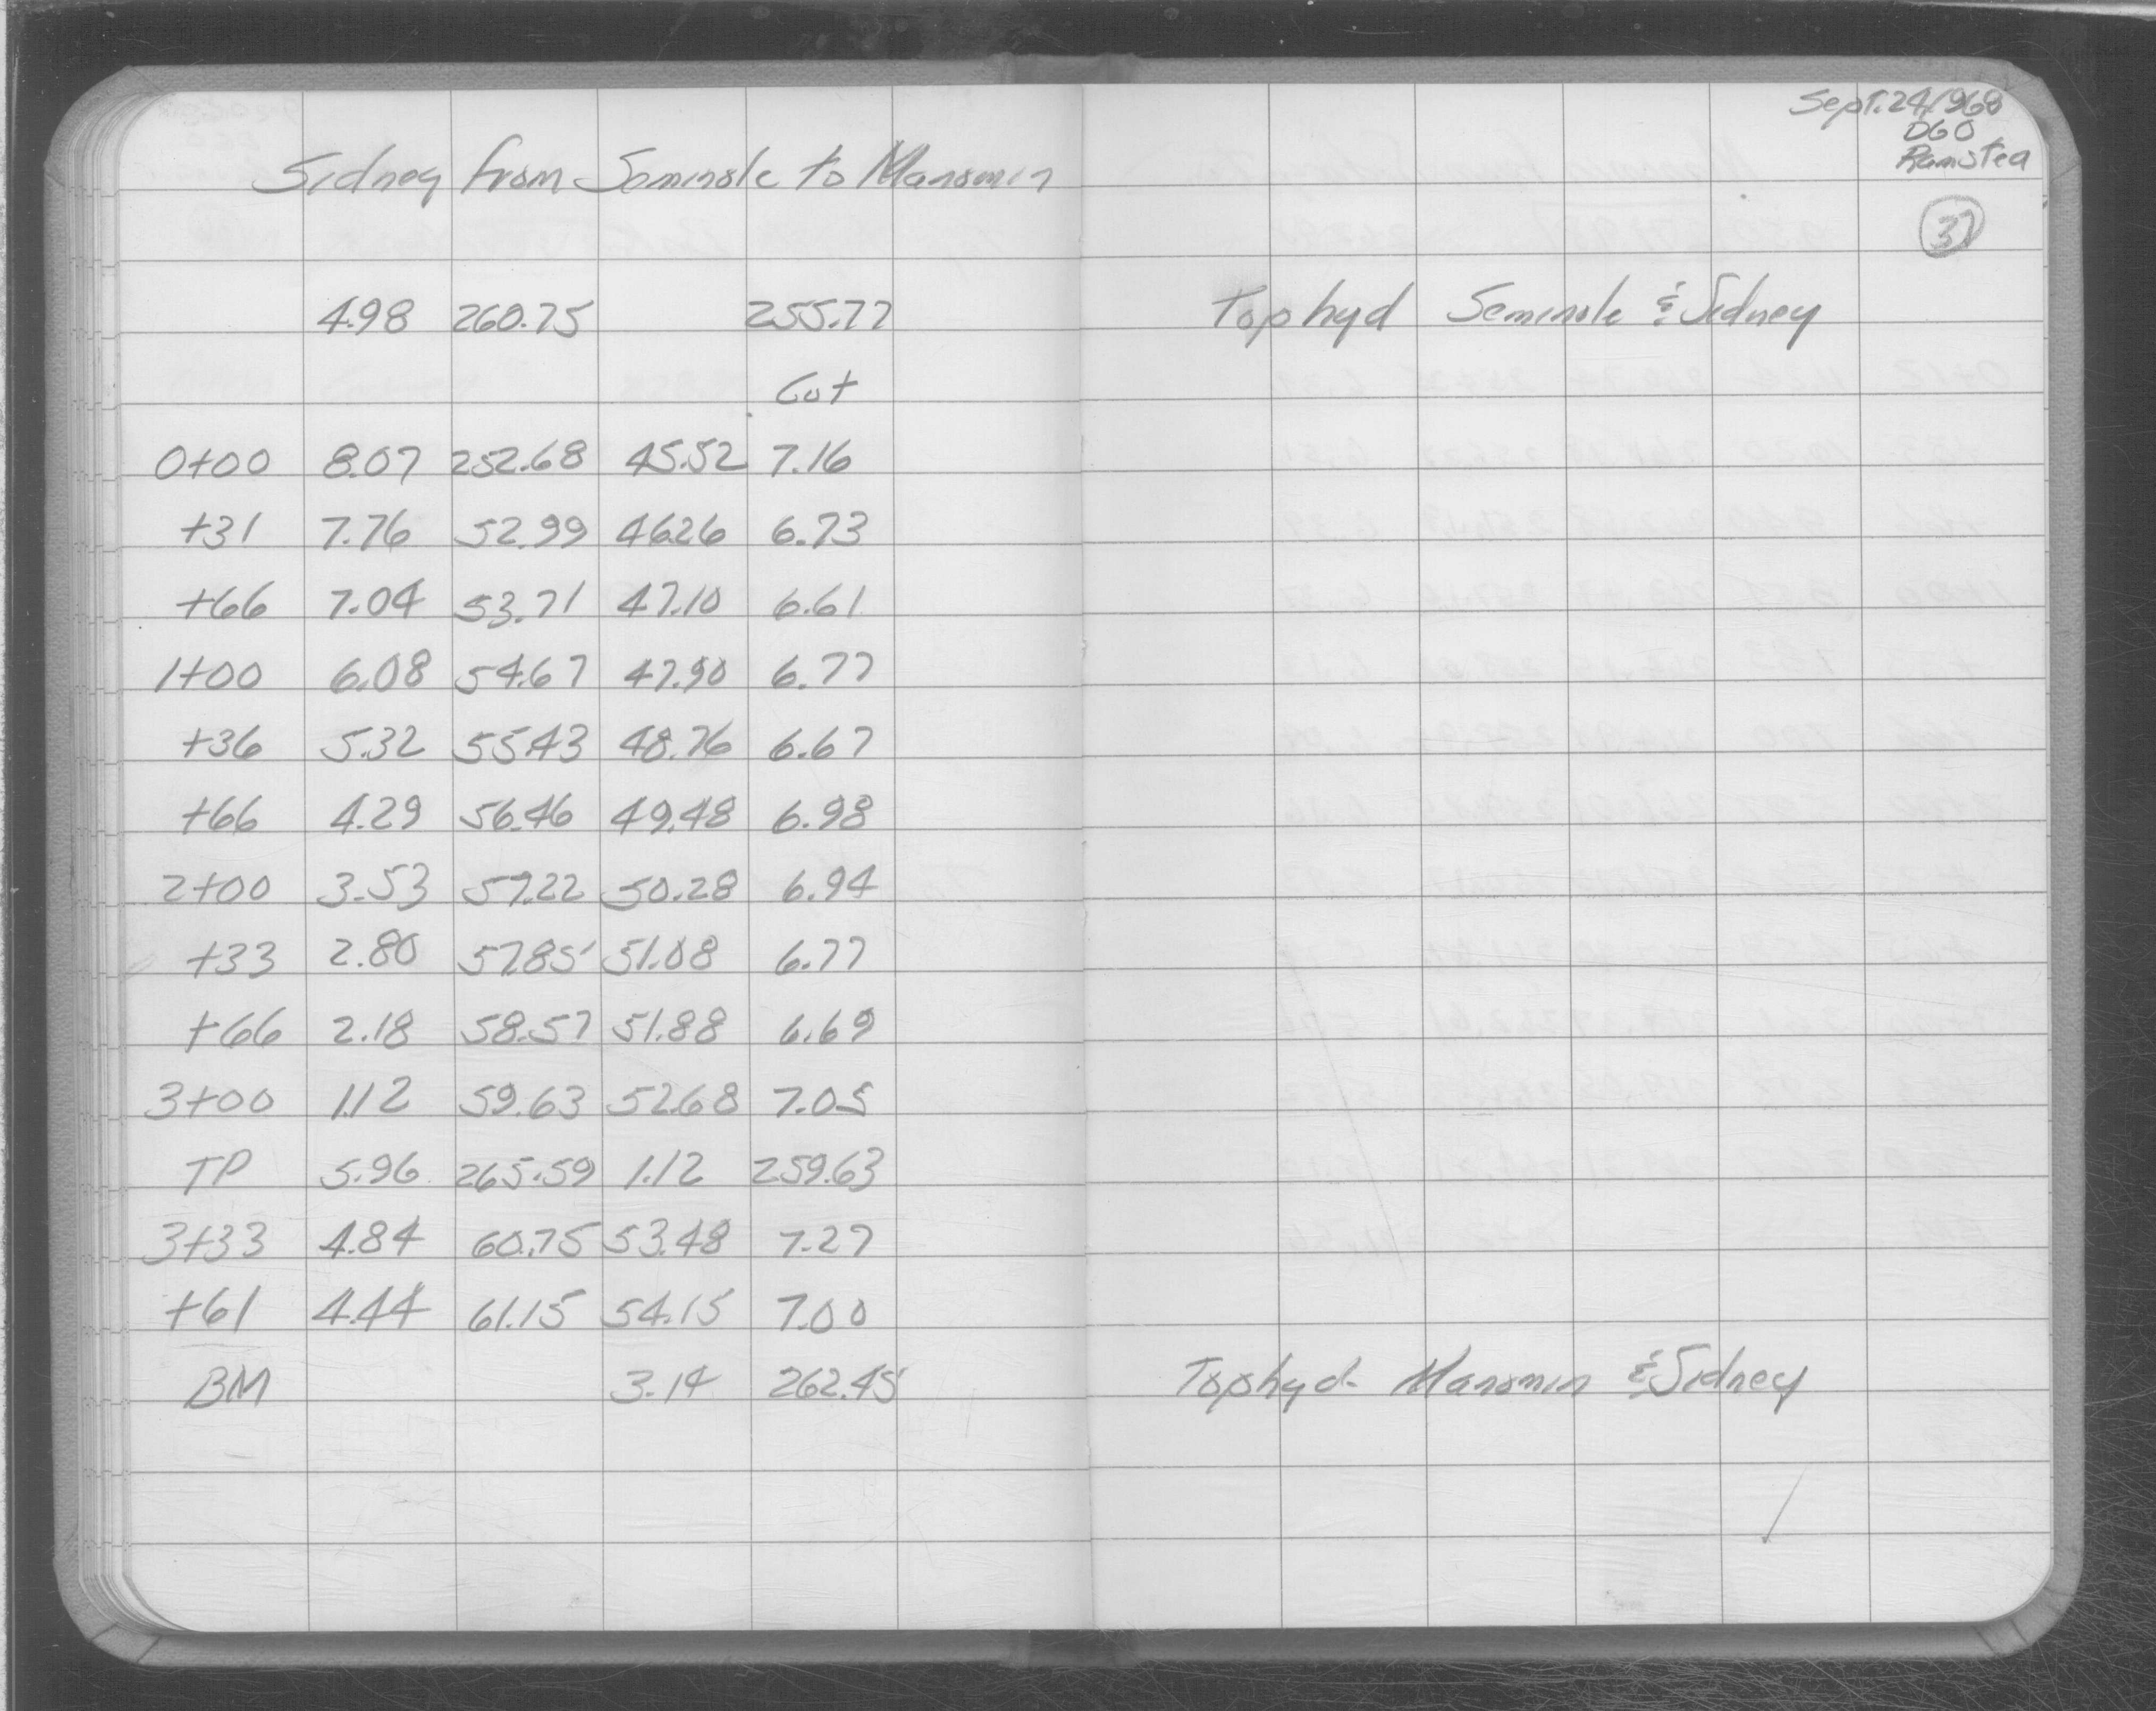 Sept. 24 1968
DGO
Ramstea
37
Sidney from Seminole to Manomin
4.98 260.75 255.77 Top hyd Seminole & Sidney
Cut
0+00 8.07 252.68 45.52 7.16
+31 7.76 52.99 46.26 6.73
+66 7.04 53.71 47.10 6.61
1+00 6.08 54.67 47.90 6.77
+36 5.32 55.43 48.76 6.67
+66 4.29 56.46 49.48 6.98
2+00 3.53 57.22 50.28 6.94
+33 2.80 57.85 51.08 6.77
+66 2.18 58.57 51.88 6.69
3+00 1.12 59.63 52.68 7.05
TP 5.96 265.59 1.12 259.63
3+33 4.84 60.75 53.48 7.27
+61 4.44 61.15 54.15 7.00
BM 3.14 262.45 Top hyd. Manomin & Sidney